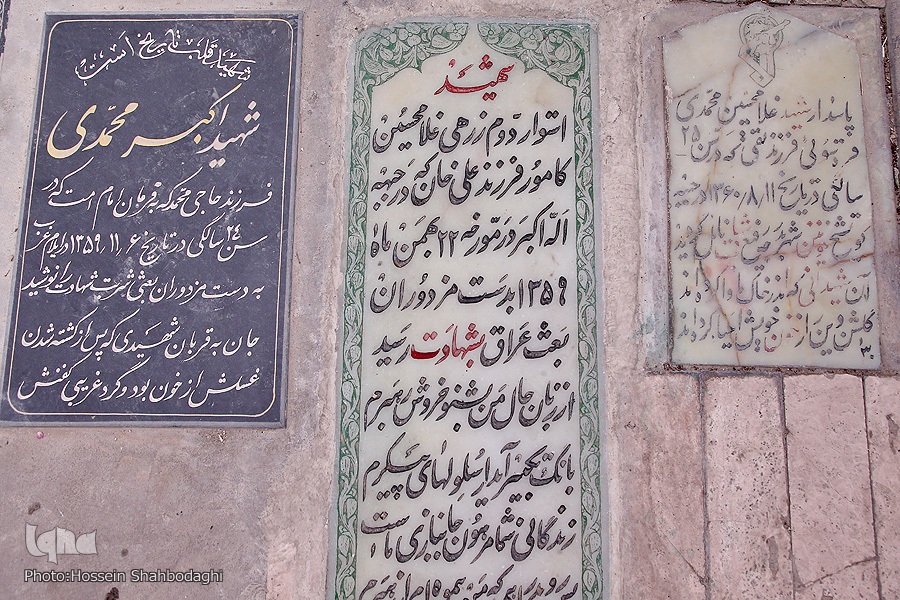 شهید قلب تاریخ است
شهید اکبر محمّدی
فرزند حاجی محمد که بفرمان امام امت که در
سن ۲۴ سالگی در تاریخ ۱۳۵۹،۱۱،۶ در ایلام غرب
به دست مزدوران بعثی شربت شهادت را نوشید
جان به قربان شهیدی که پس از کشته شدن
غسلش از خون بود و گرد غریبی کفنش
شهید
استوار دوم زرهی غلامحسین
کامور فرزند علی خان که در جبهه
الله اکبر در مورخه ۲۲ بهمن ماه
۱۳۵۹ بدست مزدوران
بعث عراق بشهادت رسید
از زبان حال من بشنو خروش رهبرم
بانگ تکبیر آید از سلولهای پیکرم
زندگانی شما مرهون جانبازی ماست
پاسدار شهید غلامحسین محمدی
فرزند تقی که در سن ۲۵
سالگی در تاریخ ۱۳۶۰/۸/۱۱ در جبهه
این شهیدانی که اندر خاک
گلشن دین را ز خون خویش احیا کرده اند
iqna
Photo:Hossein Shahbodaghi